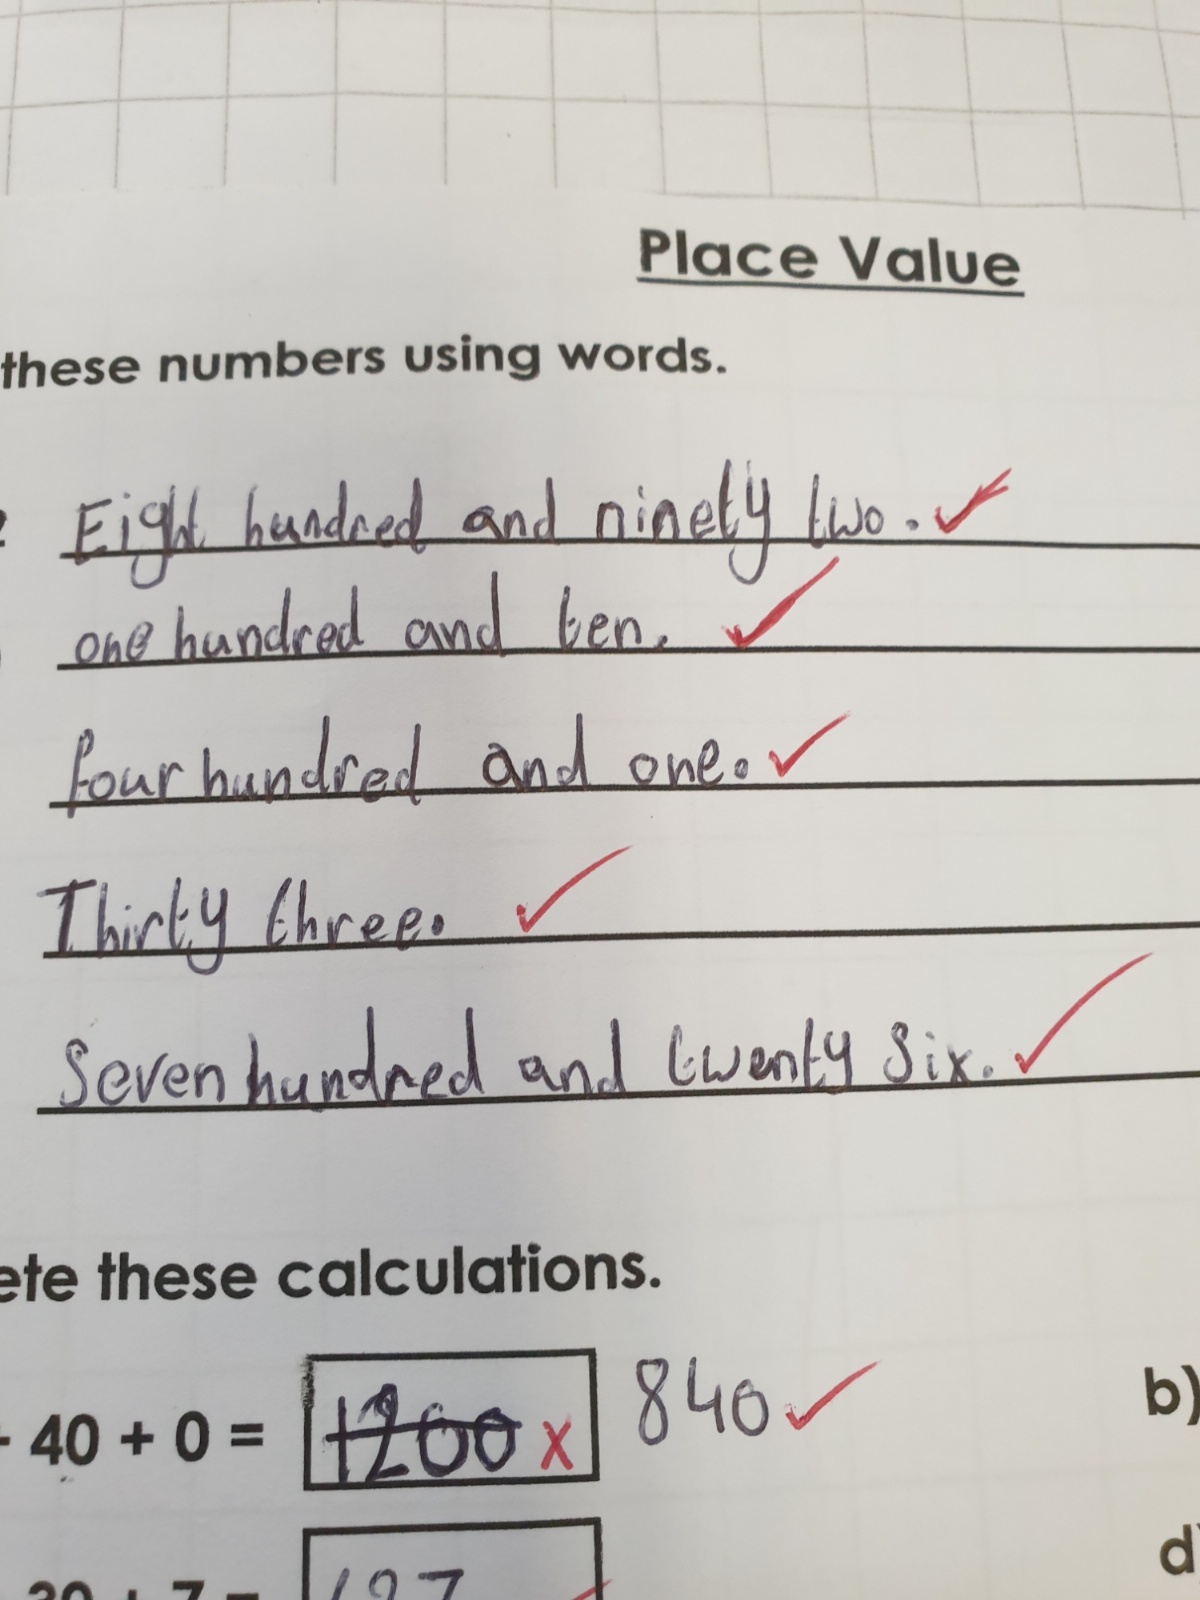 Place Value
these numbers using words.
Eight hundred and ninety two.
one hundred and ten.
four hundred and one.
Thirty three.
Seven hundred and twenty six.
ete these calculations.
40 + 0 = 1200 x 840
b)
d)